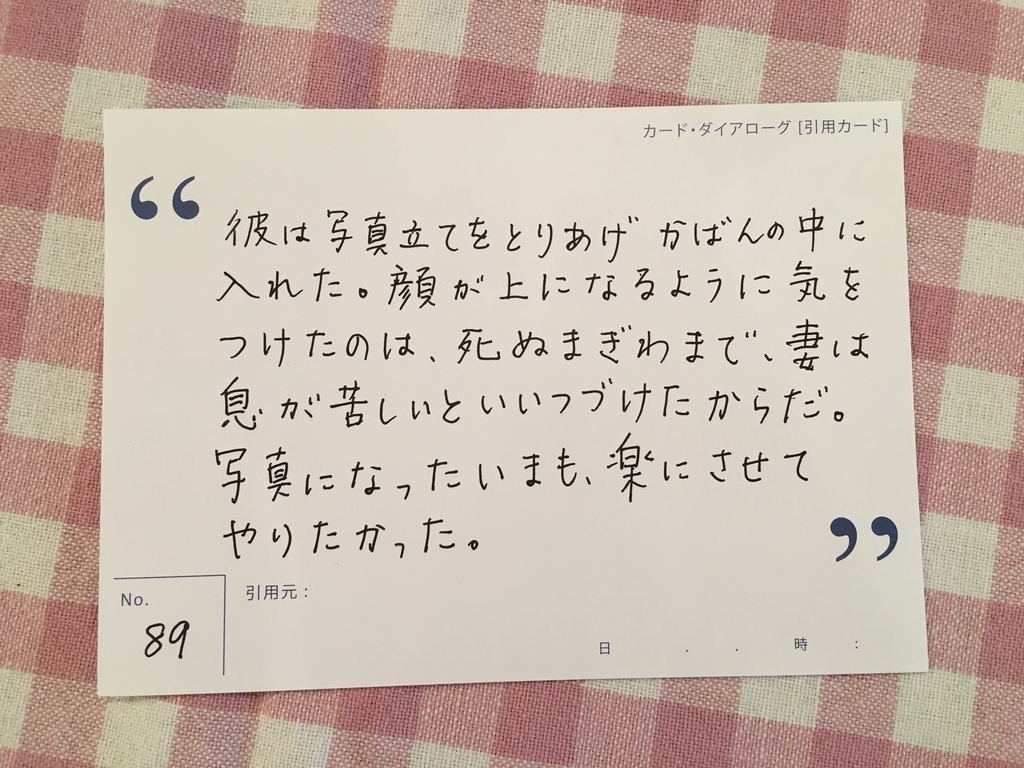 カード・ダイアローグ [引用カード]
“
彼は写真立てをとりあげ かばんの中に
入れた。顔が上になるように気を
つけたのは、死ぬまぎわまで、妻は
息が苦しいといいつづけたからだ。
写真になったいまも、楽にさせて
やりたかった。
”
No.
89
引用元：
日 . . 時 :